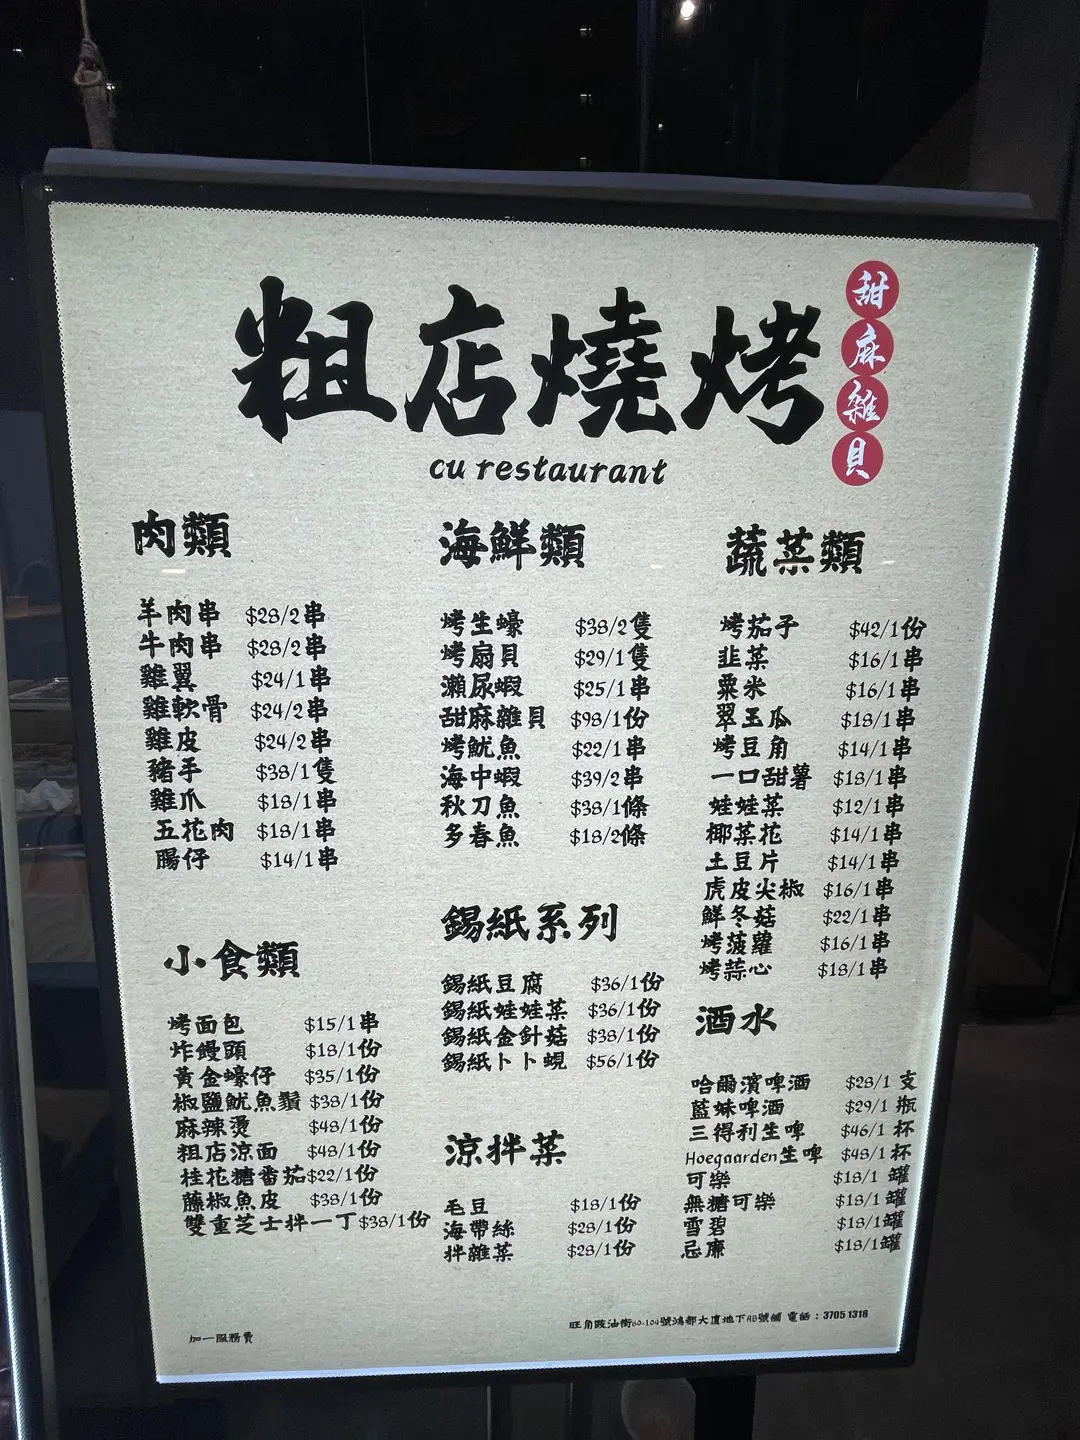 粗店燒烤
甜麻雜貝
cu restaurant
肉類
羊肉串 $28/2串
牛肉串 $28/2串
雞翼 $24/1串
雞軟骨 $24/2串
雞皮 $24/2串
豬手 $38/1隻
雞爪 $18/1串
五花肉 $18/1串
腸仔 $14/1串
小食類
烤面包 $15/1串
炸饅頭 $18/1份
黃金蠔仔 $35/1份
椒鹽魷魚鬚 $38/1份
麻辣燙 $48/1份
粗店涼面 $48/1份
桂花糖番茄 $22/1份
藤椒魚皮 $38/1份
雙重芝士拌一丁 $38/1份
海鮮類
烤生蠔 $38/2隻
烤扇貝 $29/1隻
瀨尿蝦 $25/1串
甜麻雜貝 $98/1份
烤魷魚 $22/1串
海中蝦 $39/2串
秋刀魚 $38/1條
多春魚 $18/2條
錫紙系列
錫紙豆腐 $36/1份
錫紙娃娃菜 $36/1份
錫紙金針菇 $38/1份
錫紙卜卜蜆 $56/1份
涼拌菜
毛豆 $18/1份
海帶絲 $28/1份
拌雜菜 $28/1份
蔬菜類
烤茄子 $42/1份
韭菜 $16/1串
粟米 $16/1串
翠玉瓜 $18/1串
烤豆角 $14/1串
一口甜薯 $18/1串
娃娃菜 $12/1串
椰菜花 $14/1串
土豆片 $14/1串
虎皮尖椒 $16/1串
鮮冬菇 $22/1串
烤菠蘿 $16/1串
烤蒜心 $18/1串
酒水
哈爾濱啤酒 $28/1 支
藍妹啤酒 $29/1 瓶
三得利生啤 $46/1 杯
Hoegaarden生啤 $48/1 杯
可樂 $18/1 罐
無糖可樂 $18/1罐
雪碧 $18/1罐
忌廉 $18/1罐
加一服務費
旺角豉油街60-104號鴻都大廈地下AB號舖 電話：3705 1318